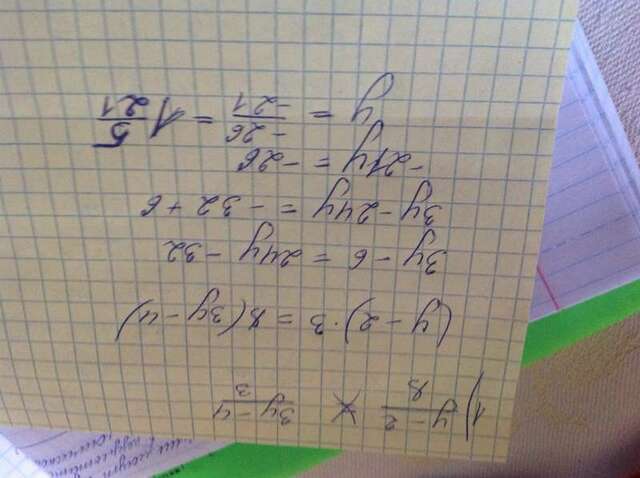 1) y-2/8 × 3y-4/3
(y-2)·3=8(3y-4)
3y-6=24y-32
3y-24y=-32+6
-21y=-26
y=-26/-21=1 5/21